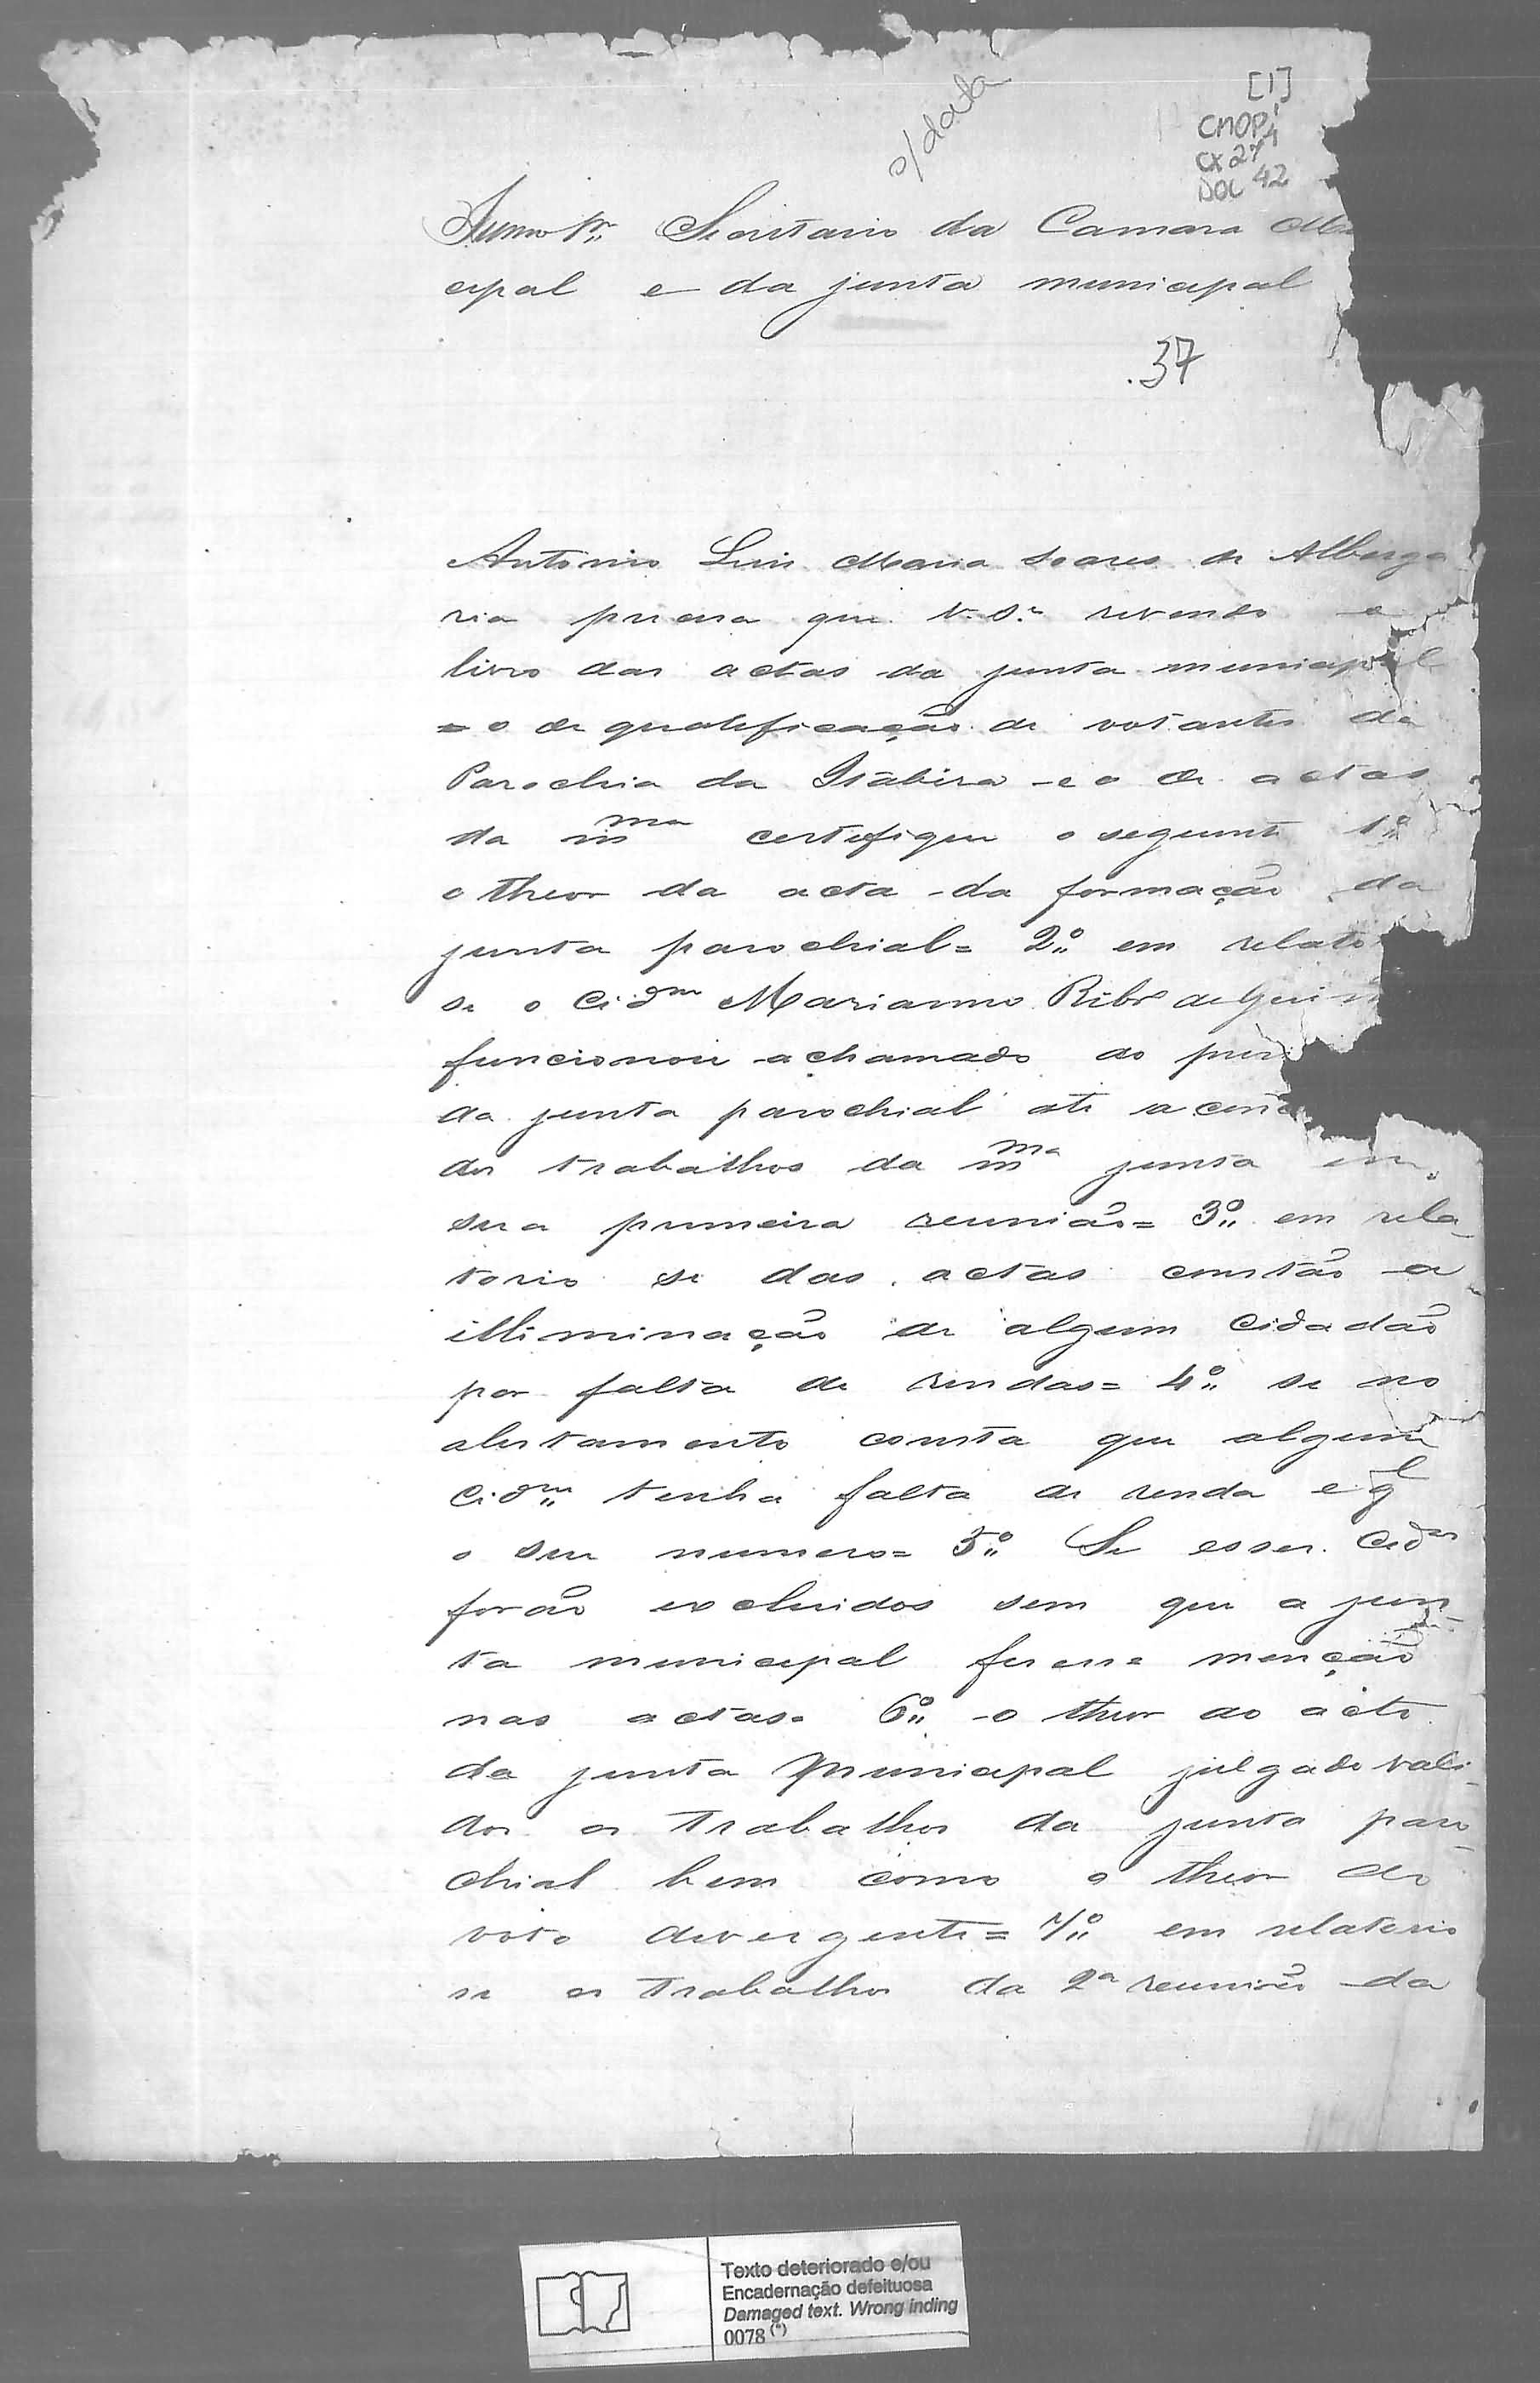 s/data
[1]
CMOP
CX 27
DOC 42
Secretario da Camara Mu
cipal e da junta municipal
.37
Antonio Luis Maria Soares de Alberga
ria precisa que V. S.ª revendo o
livro das actas da junta municipal
e o de qualificação de votantes da
Parochia da Itabira e o de actas
da m.ma certifique o seguinte 1º
o theor da acta da formação da
junta parochial = 2º em relato
se o Cid.m Marianno Ribr.º de Guim
funcionou a chamado do pres
da junta parochial ate a conc
dos trabalhos da m.ma junta em
sua primeira reunião = 3º em rela-
torio se das actas constão a
illiminação de algum cidadão
por falta de rendas = 4º se no
alistamento consta que algum
Cid.m tenha falta de renda e ql
o seu numero = 5º Se esses Cid.es
forão excluidos sem que a jun-
ta municipal fisesse menção
nas actas = 6º o theor do acto
da junta municipal julgado vali-
dos os trabalhos da junta paro-
chial bem como o theor do
voto divergente = 7º em relatorio
se os trabalhos da 2ª reunião da
Texto deteriorado e/ou
Encadernação defeituosa
Damaged text. Wrong inding
0078 (*)